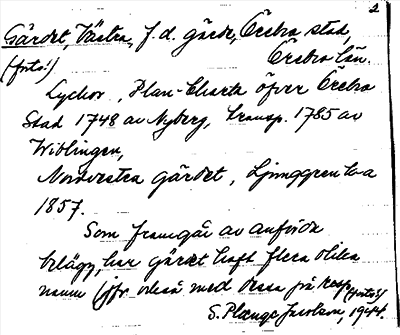 2
Gärdet, Västra, f.d. gärde, Örebro stad,
Örebro län.
(forts.)
Lyckor, Plan-Charta öfver Örebro
Stad 1748 av Nyberg, transp. 1785 av
Wiblingen,
Nordvestra gärdet, Ljunggren
1857.
Som framgår av anförda
belägg, har gärdet haft flera olika
namn (jfr också med dessa på resp.
(forts.)
S. 1944.